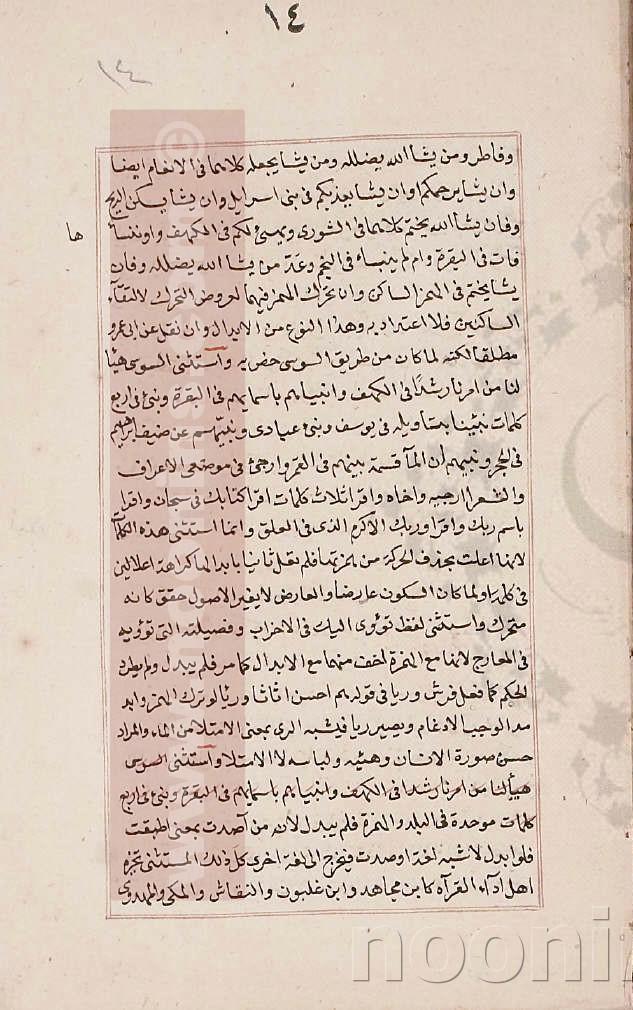 ١٤
١٤
وفاطر ومن يشا الله يضلله ومن يشا يجعله كلاهما فى الانعام ايضا
وان يشا يرحمكم او ان يشا يعذبكم فى بنى اسرايل وان يشا يسكن الريح
وفان يشا الله يختم كلاهما فى الشورى ويهيئ لكم فى الكهف واو ننسأ
ها
فات فى البقرة وام لم ينبأ فى النجم وعد من يشا الله يضلله وفان
يشا يختم فى الهمز الساكن وان تحرك الهمز فيهما لعروض التحرك لالتقاء
الساكنين فلا اعتداد به وهذا النوع من الابدال وان نقل عن ابى عمرو
مطلقا لكنه لما كان من طريق السوسى خص به واستثنى السوسى هيأ
لنا من امرنا رشدًا فى الكهف وانبياهم باسمايهم فى البقرة ونبئ فى اربع
كلمات نبئنا بتاويله فى يوسف ونبئ عبادى ونبيهم عن ضيف ابراهيم
فى الحجر ونبيهم ان الما قسمة بينهم فى القمر وارجئ فى موضعى الاعراف
والشعرا ارجيه واخاه واقرا ثلاث كلمات اقرا كتابك فى سبحان واقرا
باسم ربك واقرا وربك الاكرم الذى فى العلق وانما استثنى هذه الكلمات
لانها اعلت بحذف الحركة من همزتها فلم تعل ثانيا بابدالها كراهة اعلالين
فى كلمة ولما كان السكون عارضا والعارض لا يغير الاصول حقق كانه
متحرك واستثنى لفظ تؤوى اليك فى الاحزاب وفصيلته التى تؤويه
فى المعارج لانها مع الهمزة اخف منها مع الابدال كما مر فلم يبدل ولم يطرد
الحكم كما فعل ورش وريا فى قوله هم احسن اثاثا وريا لو ترك الهمز وابد
مدا لوجب الادغام ويصير ريا فيشبه الرى بمعنى الامتلا من الماء والمراد
حسن صورة الانسان وهيئه ولباسه لا الامتلا واستثنى السوسى
هيأ لنا من امرنا رشدا فى الكهف وانبياهم باسمايهم فى البقرة ونبئ فى اربع
كلمات موصدة فى البلد والهمزة فلم يبدل لأنه من آصدت بمعنى اطبقت
فلو ابدل لاشبه لغة اوصدت فيخرج الى لغة اخرى كل ذلك المستثنى تخيره
اهل اداء القرآه كابن مجاهد وابن غلبون والنقاش والمكى والمهدوى
nooni